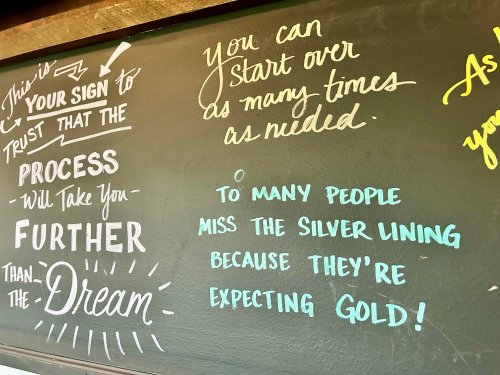 This is
YOUR SIGN to
TRUST THAT THE
PROCESS
- Will Take You -
FURTHER
THAN
THE Dream
you can
Start over
as many times
as needed.
TOO MANY PEOPLE
MISS THE SILVER LINING
BECAUSE THEY'RE
EXPECTING GOLD!
As
you